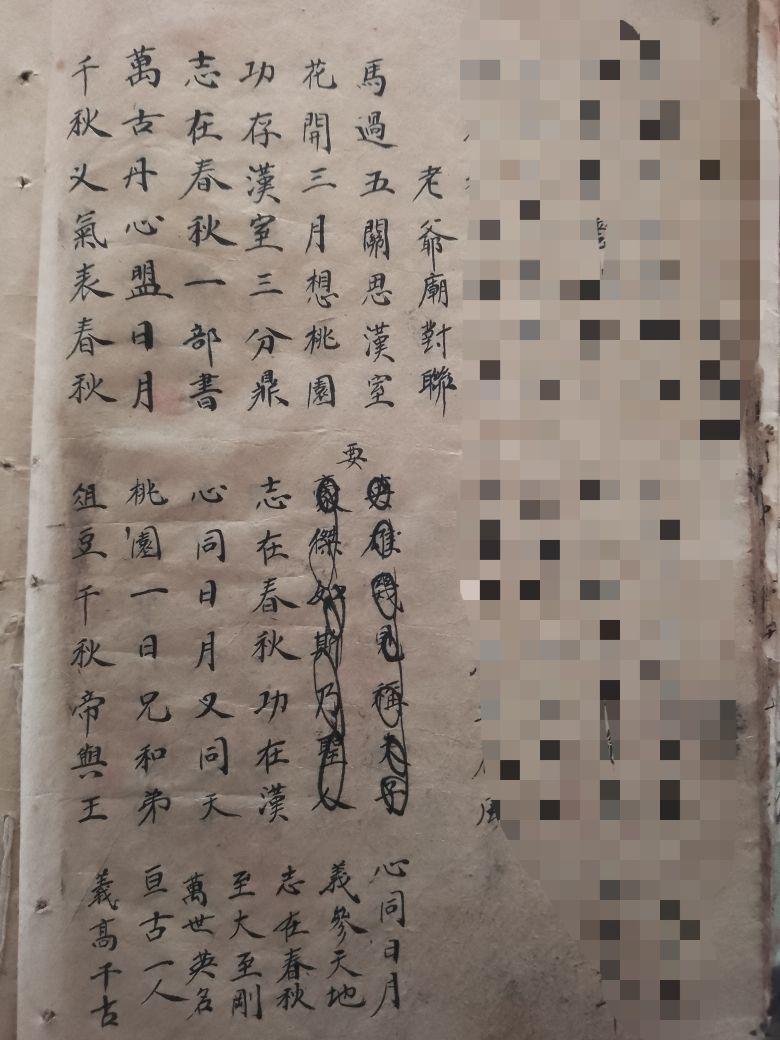 老爺廟對聯
馬過五關思漢室
花開三月想桃園
功存漢室三分鼎
志在春秋一部書
萬古丹心盟日月
千秋义氣表春秋
要
雄幾見稱夫子
豪傑如斯乃聖人
志在春秋功在漢
心同日月义同天
桃園一日兄和弟
俎豆千秋帝與王
心同日月
義參天地
志在春秋
至大至剛
萬世英名
亘古一人
義高千古